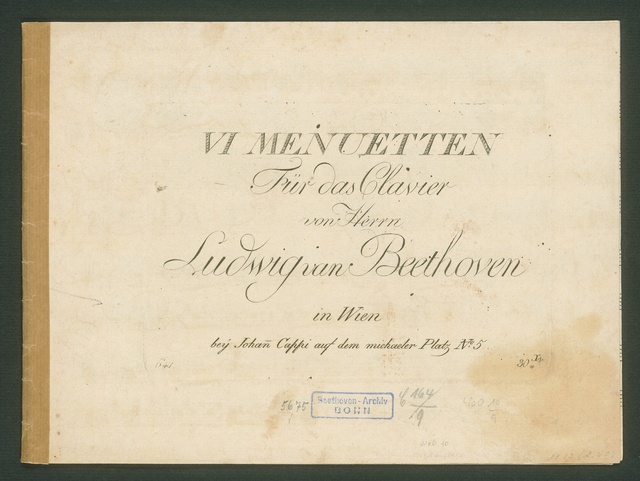 VI MENUETTEN
Für das Clavier
von Herrn
Ludwig van Beethoven
in Wien
beÿ Johañ Cappi auf dem michaeler Platz No. 5
30 Xr
5675
Beethoven-Archiv
BONN
C 164/9